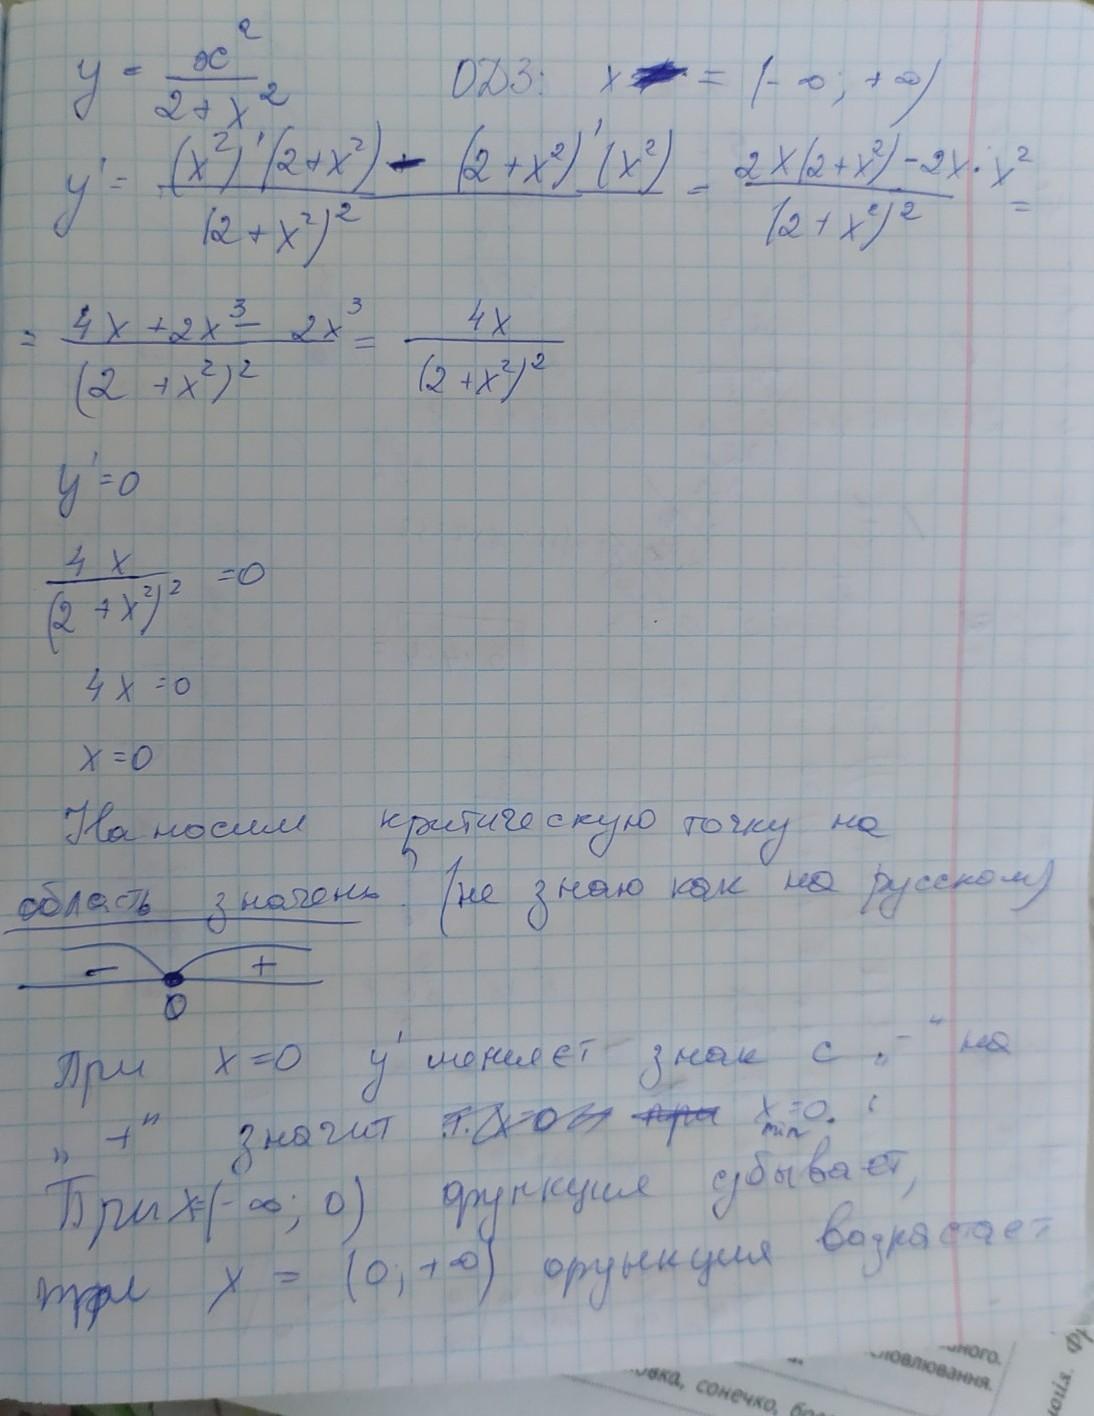 y = x² / (2 + x²) ОДЗ: x = (-∞; +∞)
y' = ((x²)'(2+x²) - (2+x²)'(x²)) / (2+x²)² = (2x(2+x²) - 2x·x²) / (2+x²)² =
= (4x + 2x³ - 2x³) / (2+x²)² = 4x / (2+x²)²
y' = 0
4x / (2+x²)² = 0
4x = 0
x = 0
Наносим критическую точку на
область значень (не знаю как на русском)
- +
0
При x = 0 y' меняєт знак с „-“ на
„+" значит x min = 0.
При x=(-∞; 0) функция убывает,
при x = (0; +∞) функция возрастает
ного.
словлювання.
сонечко,